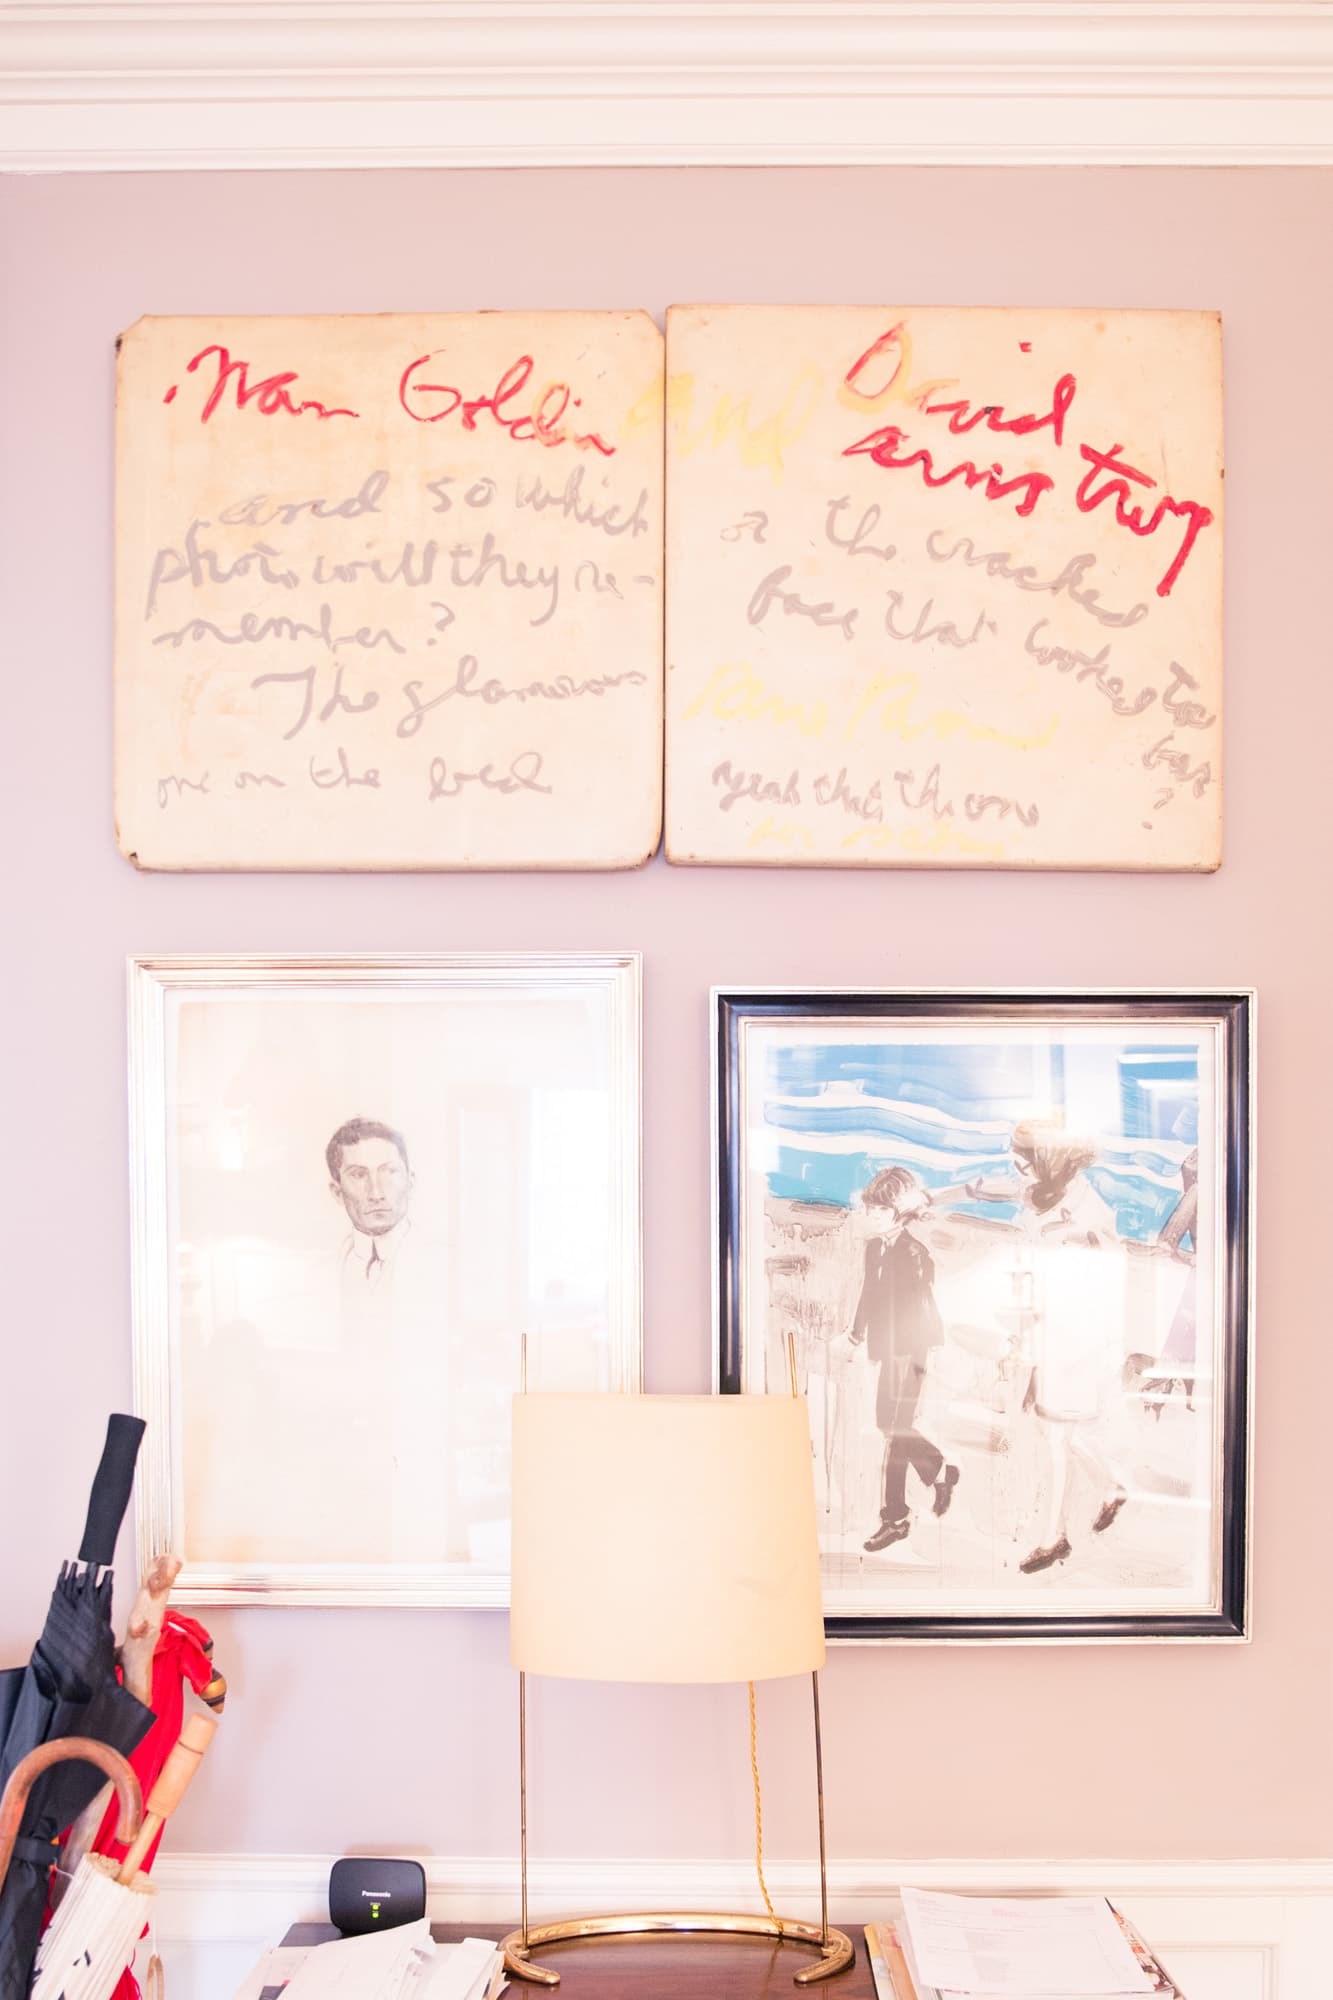 Nan Goldin and
and so which
photo will they re-
member?
The glamorous
one on the bed
David
armstrong
or the cracked
face that looked too
far
?
yeah that the one
Panasonic